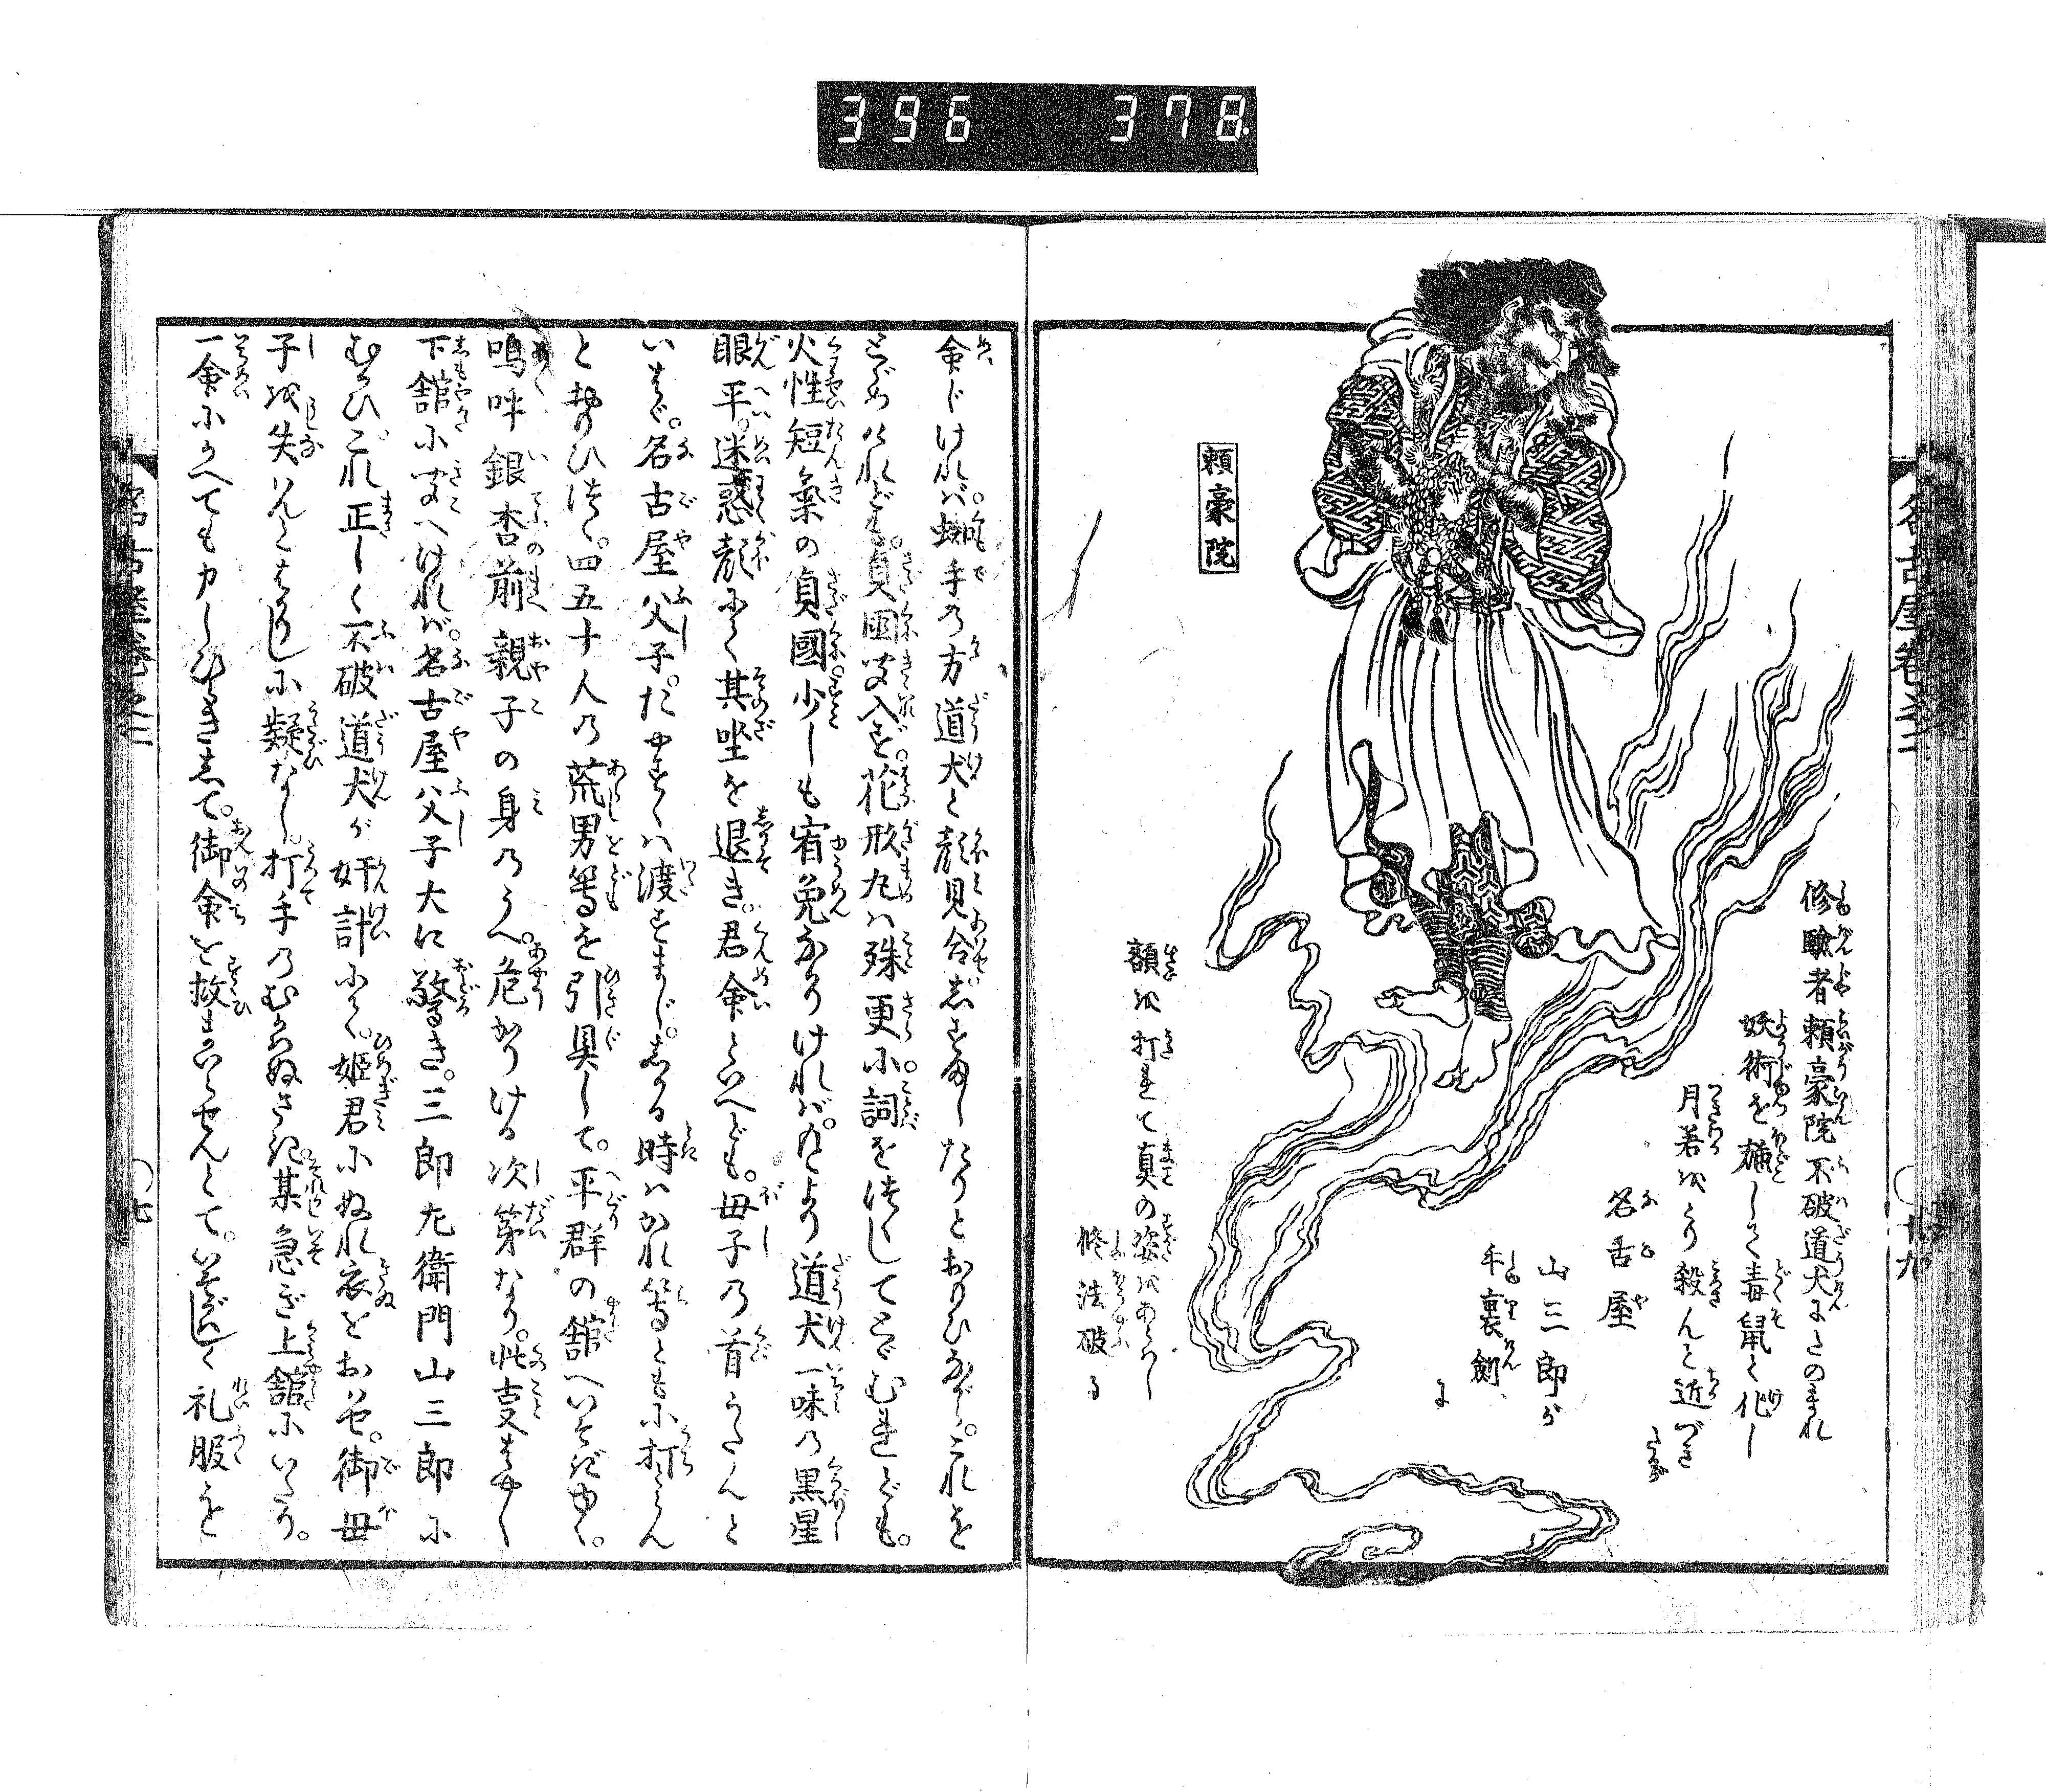 396 378
修験者頼豪院不破道犬にたのまれ
妖術を施して毒鼠と化し
月若をとり殺んと近づき
たるが
名古屋
山三郎が
手裏劍
に
額を打れて真の姿をあらはし
修法破る
頼豪院
命じければ。蜘手の方道犬と顔見合しすましたりとおもひながら。これを
とゞめけれども。貞國聞入ず。花形丸は殊更に詞をつくしてとゞむれども。
火性短氣の貞國少しも宥免なかりければ。兼より道犬一味の黒星
眼平。迷惑顔にて其坐を退き。君命といへども。母子の首うたんと
いはゞ。名古屋父子。たやすくは渡すまじ。しかる時はかれ等ともに打とらん
と勢ひつく。四五十人の荒男等を引具して。平群の舘へいそぎゆく。
嗚呼銀杏前親子の身のうへ。危かりける次第なり。此叓はやく
下舘に聞へければ。名古屋父子大に驚き。三郎左衛門山三郎に
むかひ。これ正しく不破道犬が奸計にて。姫君にぬれ衣をおはせ。御母
子を失はんとはかりしに疑なし。打手のむかはぬさき。某急ぎ上舘にいたり。
一命にかへても力しひらきして。御命を救まいらせんとて。いそがはしく礼服を